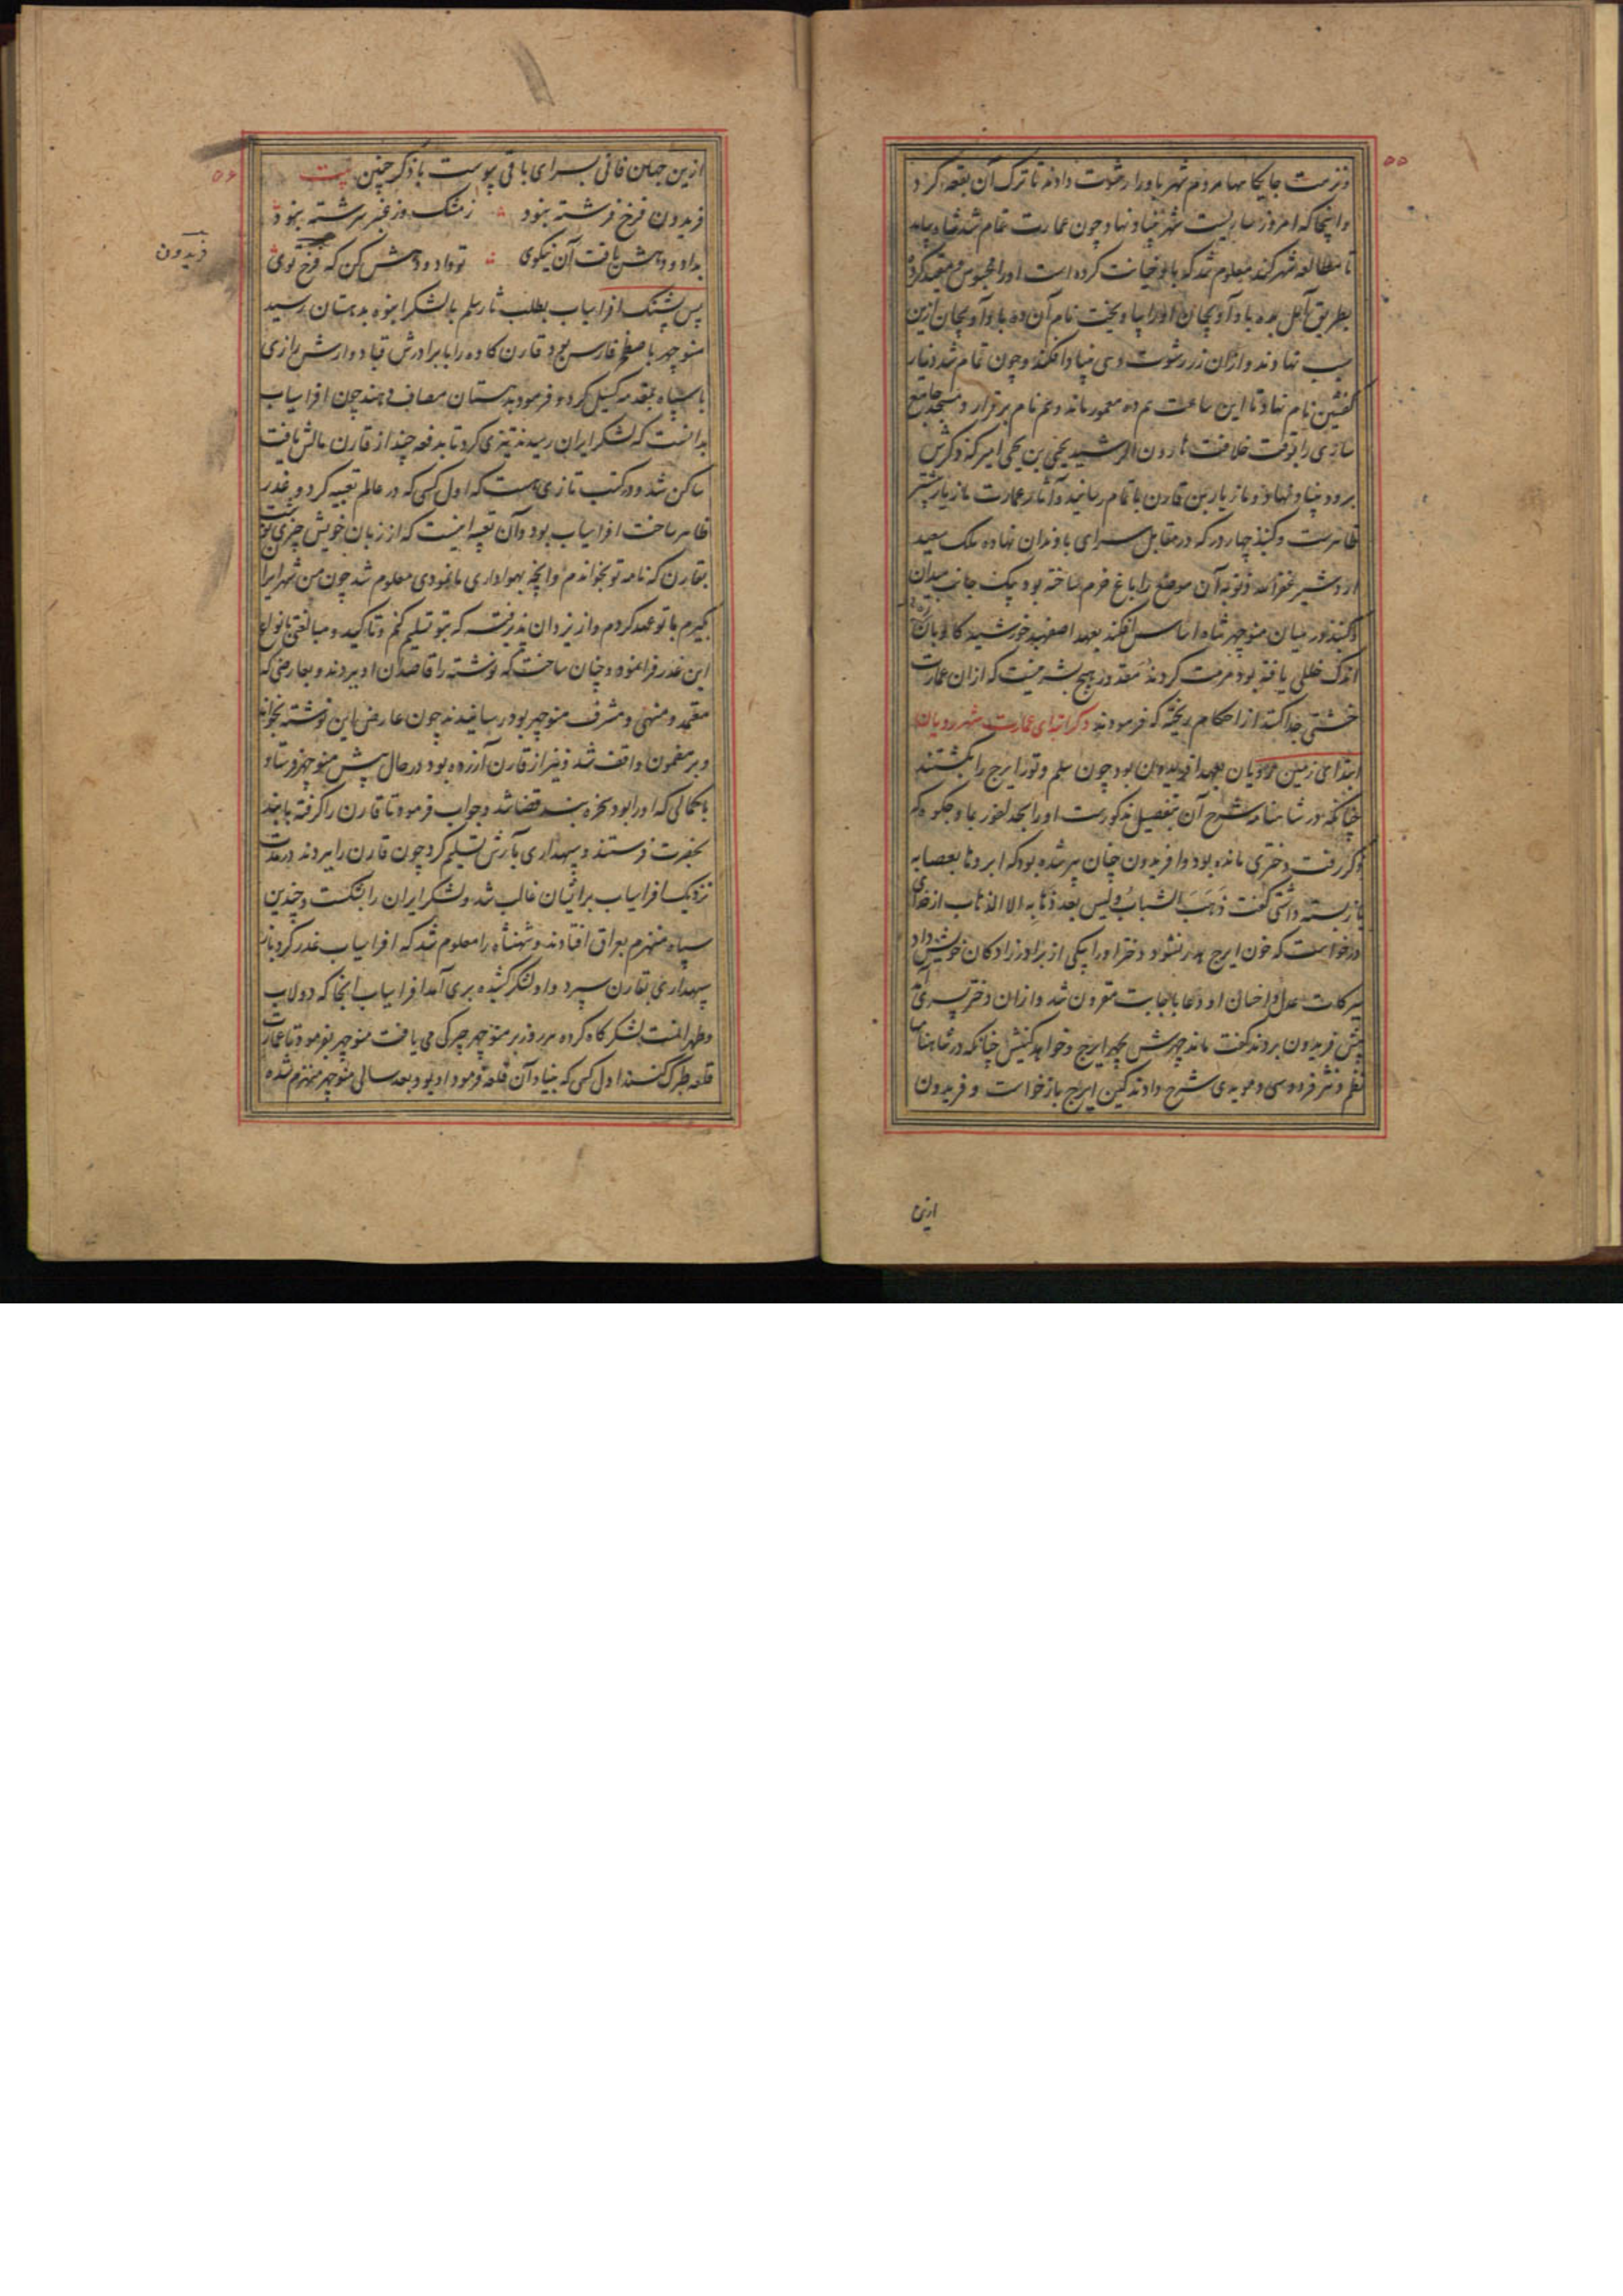 ۵۵
و نزهت جایگاها مردم شهر باو را رشوت دادند تا ترک آن بقعه کرد
و اینجا که امروز ساریست شهر بنیاد نهاد و چون عمارت تمام شد شاه بیامد
تا مطالعه شهر کند معلوم شد که باو خیانت کرده است او را محبوس و مقید کرد
بطریق آمل بدیه باو آویجمان او را بیاویخت نام آن ده باو آویجمان ازین
سبب نهادند و از آن زر رشوت دهی بنیاد افکند و چون تمام شد دینار
کفشین نام نهاد تا این ساعت هم ده معمور ماند و هم نام برقرار و مسجد جامع
ساری را بوقت خلافت هارون الرشید یحیی بن یحیی امیر کند و کرس
برود بنیاد نهاد و مازیار بن قارن باتمام رسانید و آثار عمارت مازیار بیشتر
ظاهرست و گنبد چهار در که در مقابل سرای باوندان نهاده ملک سعید
اردشیر غفرالله ذنوبه آن موضع را باغ خرم ساخته بود یک جانب میدان
و گنبد در میان منوچهر شاه اساس افکند بعهد اصفهبد خورشید گاوباره
اندک خللی یافته بود مرمت کردند مقدور هیچ بشر نیست که از آن عمارت
خشتی جدا کند از احکام ریخته که فرمودند ذکر ابتدای عمارت شهر رویان
ابتدای زمین رویان بعهد افریدون بود چون سلم و تور ایرج را بکشتند
چنانکه در شاهنامه شرح آن بتفصیل مذکورست او را بحد لفور بماوجکوه که
ذکر رفت دختری مانده بود و افریدون چنان پیر شده بود که ابروها بعصابه
باز بسته داشتی گفت ذهب الشباب و لیس بعد ذهابه الا الذهاب از خدای
درخواست که خون ایرج هدر نشود و دختر او را بیکی از برادرزادگان خویش داد
ببرکات عدل و احسان او دعا باجابت مقرون شد و از آن دختر پسری آمد
پیش فریدون بردند گفت ماند چهرش بچهر ایرج و خواهد کینش چنانکه در شاهنامها
نظم و نثر فردوسی و مویدی شرح دادند کین ایرج بازخواست و فریدون
ازین
۵۶
ازین جهان فانی بسرای باقی پیوست با ذکر چنین بیت
فریدون فرخ فرشته نبود ز مشک و ز عنبر سرشته نبود
بداد و دهش یافت آن نیکوی تو داد و دهش کن که فرخ توی
فریدون
پس پشنگ افراسیاب بطلب ثار سلم با لشکر انبوه بدهستان رسید
منوچهر باصطخر فارس بود قارن کاوه را با برادرش قباد و ارش رازی
با سپاه بمقدمه گسیل کرد و فرمود بدهستان مصاف دهند چون افراسیاب
بدانست که لشکر ایران رسیدند تیزی کرد تا بدفعه چند از قارن مالش یافت
ساکن شد و در کتب تازی هست که اول کسی که در عالم تعبیه کرد و غدر
ظاهر ساخت افراسیاب بود و آن تعبیه اینست که از زبان خویش چیزی نوشت
بقارن که نامه تو بخواندم و آنچه بهواداری ما نمودی معلوم شد چون من شهر ایران
بگیرم با تو عهد کردم و از یزدان پذیرفته که بتو تسلیم کنم و تاکید و مبالغتی بانواع
این غدر فرا نمود و چنان ساخت که نوشته را قاصدان او ببردند و بعارضی که
معتمد و منهی و مشرف منوچهر بود رسانیدند چون عارض این نوشته بخواند
و بر مضمون واقف شد و نیز از قارن آزرده بود در حال پیش منوچهر فرستاد
با کمالی که او را بود سخره بند قضا شد و جواب فرمود تا قارن را گرفته با بند
بحضرت فرستند و سپهداری بآرش تسلیم کرد چون قارن را ببردند در مدت
نزدیک افراسیاب بر ایشان غالب شد و لشکر ایران را بشکست و چندین
سپاه منهزم بعراق افتادند و شهنشاه را معلوم شد که افراسیاب غدر کرد باز
سپهداری بقارن سپرد و او لشکر کشیده بری آمد افراسیاب آنجا که دولاب
و طهرانست لشکرگاه کرده هر روز بر منوچهر چیرگی می‌یافت منوچهر بفرمود تا عمارت
قلعه طبرک کنند اول کسی که بنیاد آن قلعه فرمود او بود و بعد سالی منوچهر منهزم شده